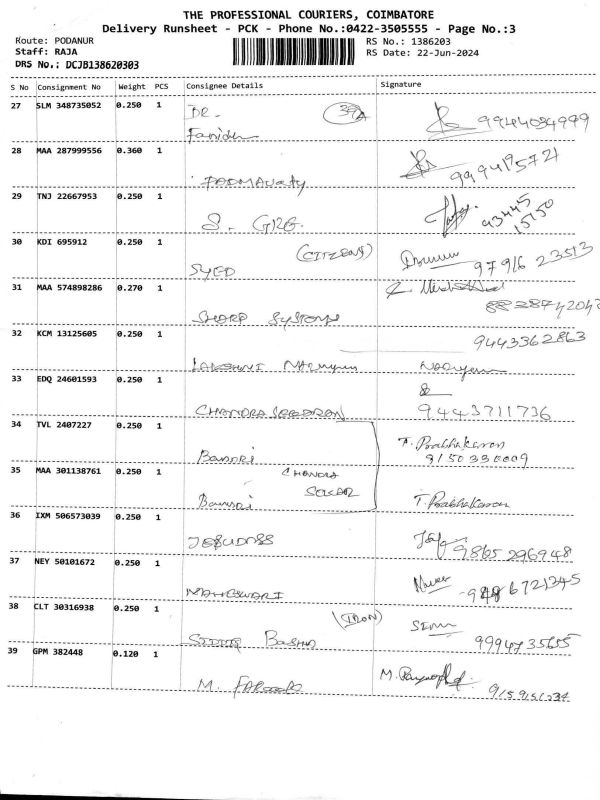 THE PROFESSIONAL COURIERS, COIMBATORE
Delivery Runsheet - PCK - Phone No.:0422-3505555 - Page No.:3
Route: PODANUR
RS No.: 1386203
Staff: RAJA
RS Date: 22-Jun-2024
DRS No.: DCJB138620303
S No Consignment No Weight PCS Consignee Details Signature
27 SLM 348735052 0.250 1 DR. 39A
9944084999
28 MAA 287999556 0.360 1 PADMAVATY 9994195721
29 TNJ 22667953 0.250 1 S. GIRG. 93445
15150
30 KDI 695912 0.250 1 SYED (CITIZENS) 97916 23513
31 MAA 574898286 0.270 1 SHARP SYSTEMS
32 KCM 13125605 0.250 1 LAKSHMI 9443362863
33 EDQ 24601593 0.250 1 CHANDRASEGARAN 9443711736
34 TVL 2407227 0.250 1 Bansri T. Prabhakaran
8150330009
35 MAA 301138761 0.250 1 Bansri CHANDRA
SEKAR T. Prabhakaran
36 IXM 506573039 0.250 1 JESUDASS 9865 296948
37 NEY 50101672 0.250 1 MAHESWARI
38 CLT 30316938 0.250 1 Basha (IRON) 9994735655
39 GPM 382448 0.120 1 M. FAROOK